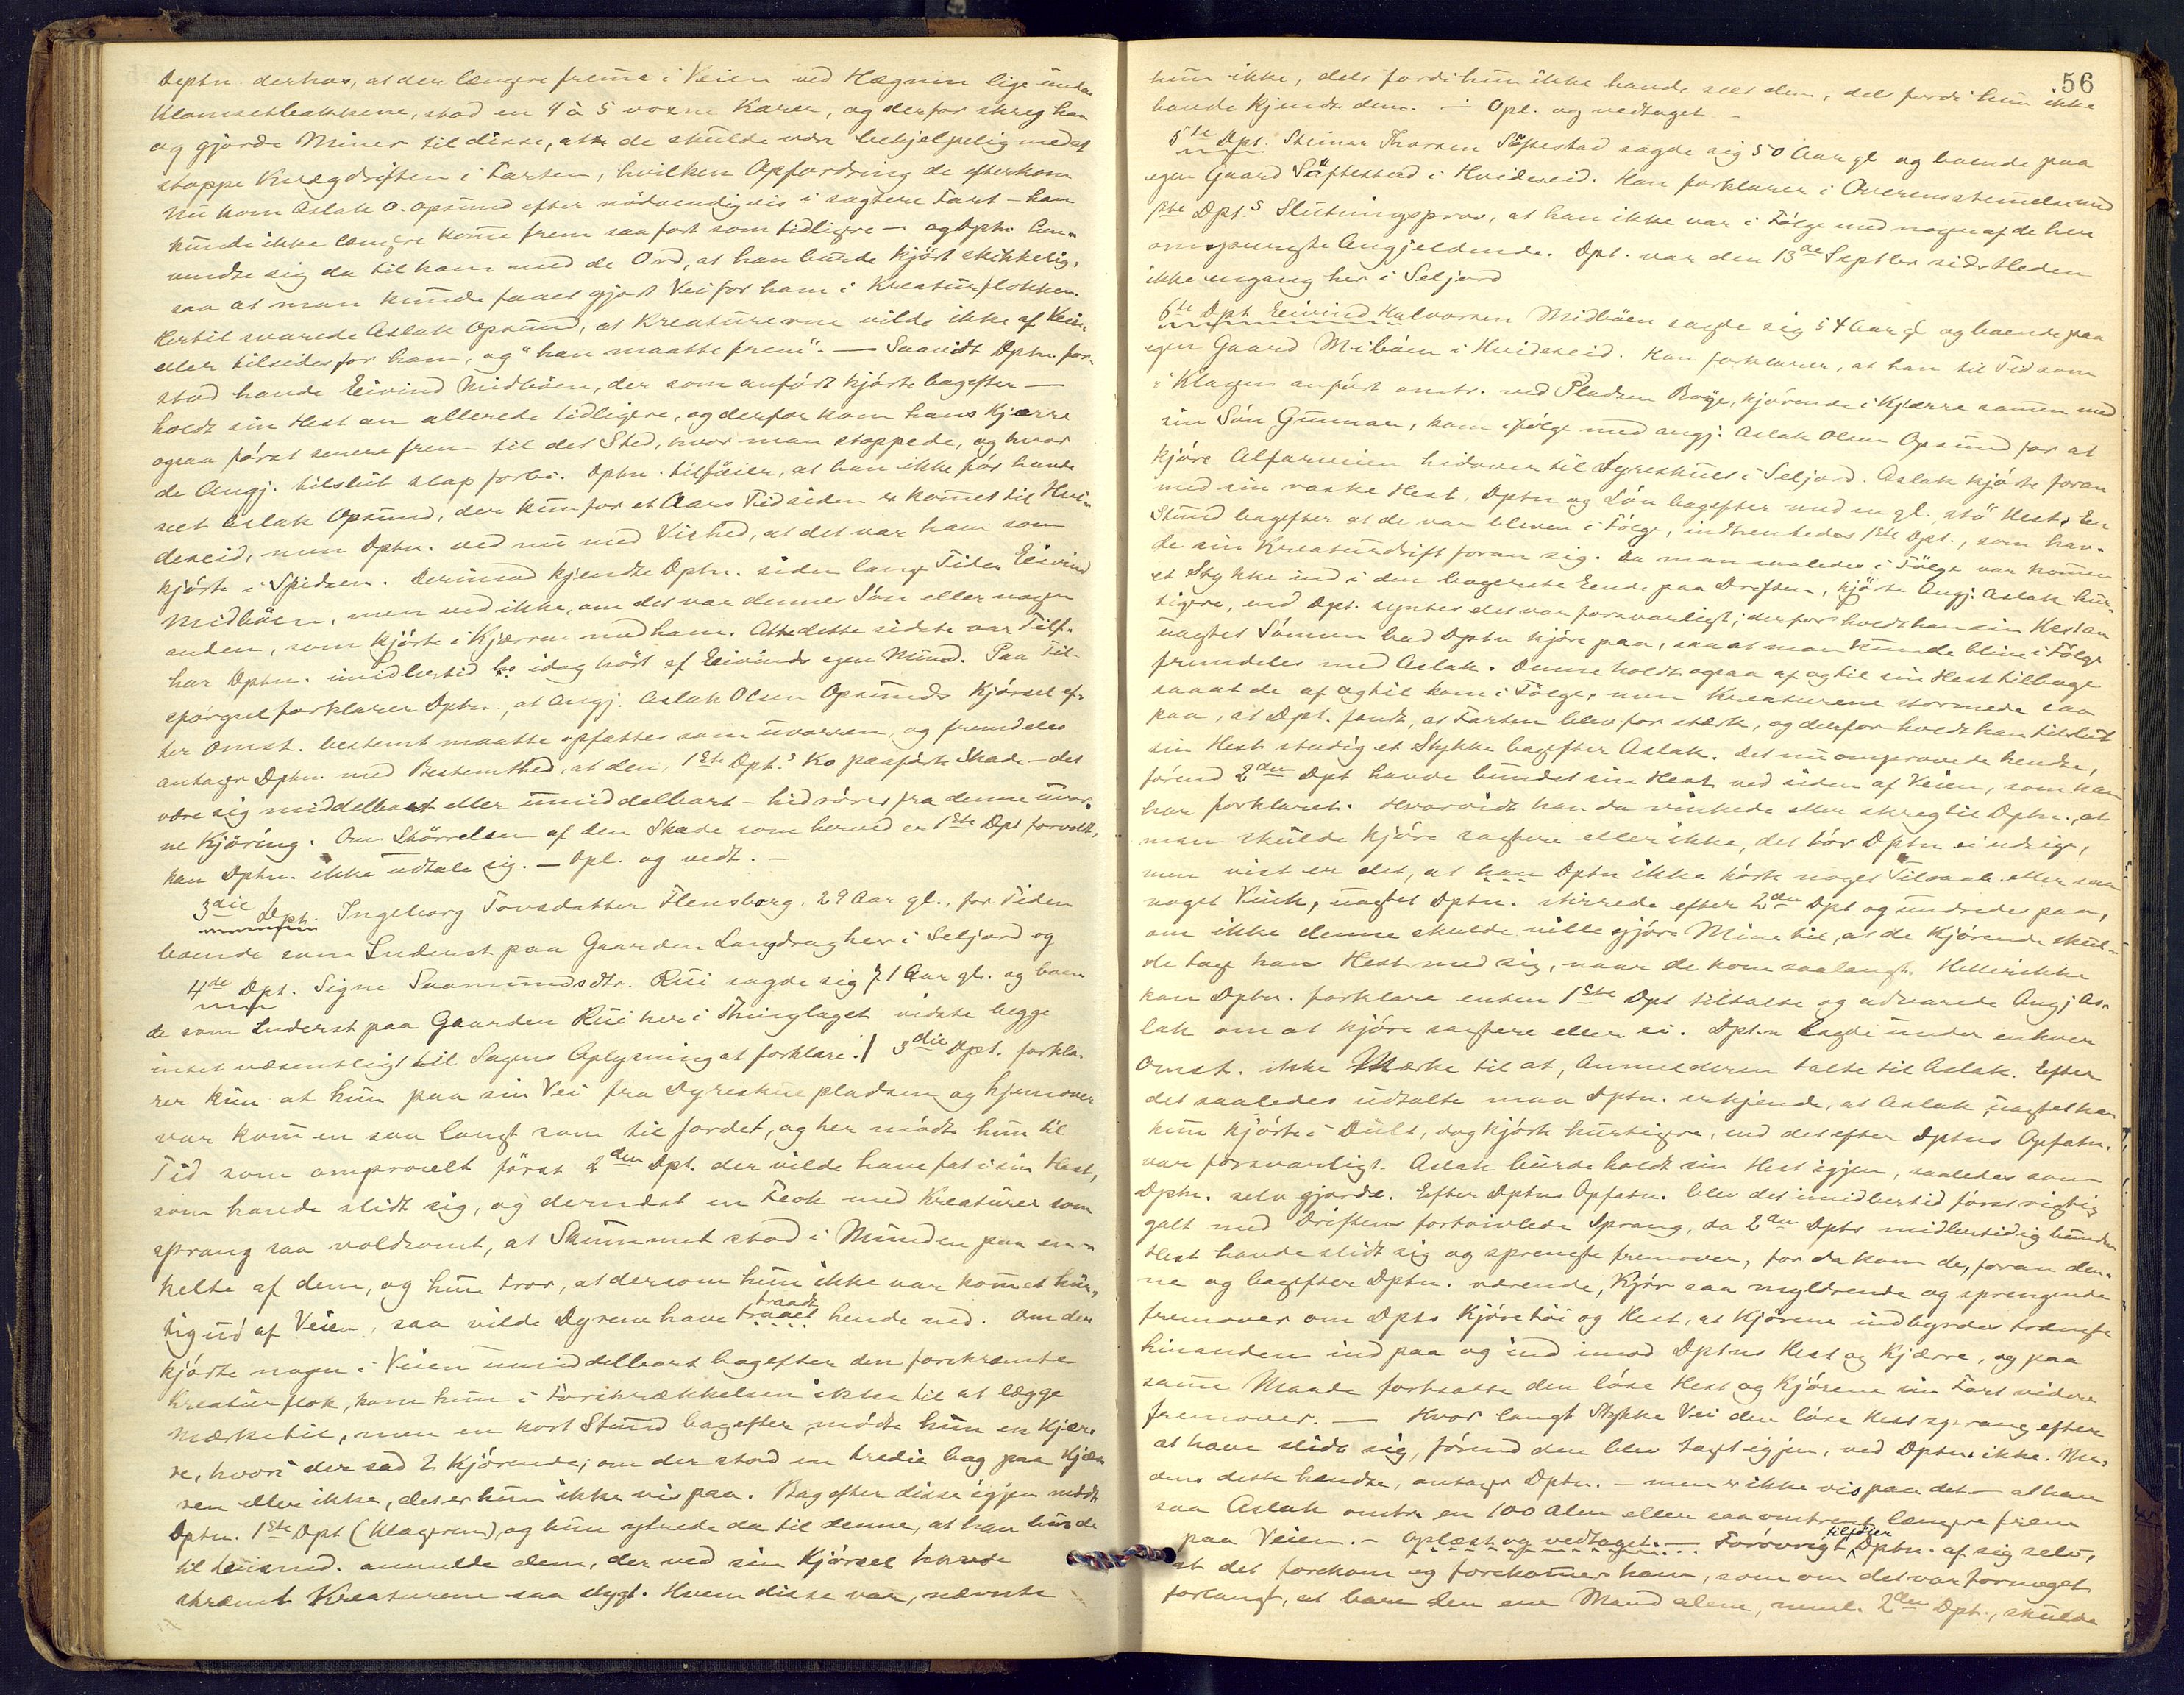 Dptn. derhos, at der længere fremme i Veien ved Hægnin lige under
Klomsetbakkene, stod en 4 à 5 voxne Karer, og derfor skreg han
og gjorde Miner til disse, at de skulde være behjelpelig med at
stoppe Kvægdriften i Farten, hvilken Opfordring de efterkom
Nu kom Aslak O. Opsund efter nödvendigvis i sagtere Fart – han
kunde ikke længere komme frem saa fort som tidligere – og Dptn. hen-
vendte sig da til ham med de Ord, at han burde kjört skikkelig,
saa at man kunde faaet gjort Vei for ham i Kreaturflokken.
Hertil svarede Aslak Opsund, at Kreaturerne vilde ikke af Veien
eller tilsides for ham, og "han maatte frem". — Saavidt Dptn. for-
stod havde Eivind Midböen, der som anfört kjörte bagefter —
holdt sin Hest an allerede tidligere, og derfor kom hans Kjærre
ogsaa först senere frem til det Sted, hvor man stoppede, og hvor
de Angj. tilslut slap forbi. Dptn. tilföier, at han ikke för havde
seet Aslak Opsund, der kun for et Aars Tid siden er kommet til Hvi-
deseid, men Dptn. ved nu med Vished, at det var ham som
kjörte i Spidsen. Derimod kjendte Dptn. siden lang Tid Eivind
Midböen, men ved ikke, om det var dennes Sön eller nogen
anden, som kjörte i Kjærren med ham. At dette sidste var Tilf.
har Dptn. imidlertid idag hört af Eivinds egen Mund. Paa Til-
spörgsel forklarer Dptn., at Angj. Aslak Olsen Opsunds Kjörsel ef-
ter Omst. bestemt maatte opfattes som uvorren, og fremdeles
antager Dptn. med Bestemthed, at den, 1ste Dpt.s Ko paaförte Skade – det
være sig middelbart eller umiddelbart – hidrörer fra denne uvor-
ne Kjöring. Om Störrelsen af den Skade som herved er 1ste Dpt forvoldt,
kan Dptn. ikke udtale sig. — Opl. og vedt. –
3die Dpt. Ingeborg Tovsdatter Flensborg, 29 Aar gl., for Tiden
boende som Inderst paa Gaarden Langdrag her i Seljord og
4de Dpt. Signe Saamundsdtr. Rui sagde sig 71 Aar gl. og boen
de som Inderst paa Gaarden Rui her i Thinglaget vidste begge
intet væsentligt til Sagens Oplysning at forklare. 3die Dpt. forkla-
rer kun at hun paa sin Vei fra Dyreskuepladsen og hjemover
var kommen saa langt som til fordet, og her mödte hun til
Tid som omprovelt först 2den Dpt. der vilde have fat i sin Hest,
som havde slidt sig, og dernæst en Flok med Kreaturer som
sprang saa voldsomt, at Skummet stod i Munden paa en-
kelte af dem, og hun tror, at dersom hun ikke var kommet hur-
tig ud af Veien, saa vilde Dyrene have traadt hende ned. Om der
kjörte nogen i Veien umiddelbart bagefter den forskræmte
Kreaturflok, kom hun i Forskrækkelsen ikke til at lægge
Mærke til, men en kort Stund bagefter mödte hun en Kjær-
re, hvori der sad 2 Kjörende; om der stod en tredie bag paa Kjær-
ren eller ikke, det er hun ikke vis paa. Bagefter disse igjen mödte
Dptn. 1ste Dpt (Klageren), og hun ytrede da til denne, at han burde
til Lensmd. anmelde dem, der ved sin Kjörsel havde
skræmt Kreaturene saa stygt. Hvem disse var, nævnte
56
hun ikke, dels fordi hun ikke havde seet dem, dels fordi hun ikke
havde kjendt dem. – Opl. og vedtaget –
5te Dpt. Steinar Thorsen Söftestad sagde sig 50 Aar gl og boende paa
egen Gaard Söftestad i Hvideseid. Han forklarer i Overensstemmelse med
1ste Dpt.s Slutningsprov, at han ikke var i Fölge med nogen af de her
omspurgte Angjeldende. Dpt. var den 13de Septbr sidstleden
ikke engang her i Seljord
6te Dpt Eivind Halvorsen Midböen sagde sig 54 Aar gl og boende paa
egen Gaard Miböen i Hvideseid. Han forklarer, at han til Tid som
i Klagen anfört omtr. ved Pladsen Böye, kjörende i Kjærre sammen med
sin Sön Gunnar, kom ifölge med angj: Aslak Olsen Opsund for at
kjöre Alfarveien hidover til Dyreskuet i Seljord. Aslak kjörte foran
med sin raske Hest, Dptn og Sön bagefter med en gl. "stö" Hest. En
Stund bagefter at de var bleven i Fölge, indhentedes 1ste Dpt., som hav-
de sin Kreaturdrift foran sig. Da man saaledes i Fölge var kommen
et Stykke ind i den bagerste Ende paa Driften, kjörte Angj. Aslak hur-
tigere, end Dpt. syntes det var forsvarligt; derfor holdt han sin Hest an
uagtet Sönnen bad Dptn kjöre paa, saa at man kunde blive i Fölge
fremdeles med Aslak. Denne holdt ogsaa af og til sin Hest tilbage
saa at de af og til kom i Fölge, men Kreaturene stormede saa
paa, at Dpt. fandt, at Farten blev for stærk, og derfor holdt han tilslut
sin Hest stadig et Stykke bagefter Aslak. Det nu omprovede hendte,
förend 2den Dpt havde bundet sin Hest ved siden af Veien, som han
har forklaret. Hvorvidt han da vinkede eller skreg til Dptn., at
man skulde kjöre sagtere eller ikke, det tör Dptn ei udsige,
men vist er det, at han Dptn ikke hörte noget Tilraab eller saa
noget Vink, uagtet Dptn. stirrede efter 2den Dpt og undredes paa,
om ikke denne skulde ville gjöre Mine til, at de Kjörende skul-
de tage hans Hest med sig, naar de kom saalangt. Hellerikke
kan Dptn. forklare enten 1ste Dpt tiltalte og advarede Angj As-
lak om at kjöre sagtere eller ei. Dptn lagde under enhver
Omst. ikke Mærke til at, Anmelderen talte til Aslak. Efter
det saaledes udtalte maa Dptn. erkjende, at Aslak, uagtet han
kun kjörte i Dult, dog kjörte hurtigere, end det efter Dptns Opfatn.
var forsvarligt. Aslak burde holdt sin Hest igjen, saaledes som
Dptn. selv gjorde. Efter Dptns Opfatn. blev det imidlertid först rigtig
galt med Driftens fortvivlede Sprang, da 2den Dpts midlertidig bundne
Hest havde slidt sig og sprengte fremover, for da kom de, foran den-
ne og bagefter Dptn. værende, Kjör saa myldrende og sprengende
fremover om Dpts Kjöretöi og Hest, at Kjörene indbyrdes trængte
hinanden ind paa og ind imod Dptns Hest og Kjærre, og paa
samme Maade fortsatte den löse Hest og Kjörene sin Fart videre
fremover. — Hvor langt Stykke Vei den löse Hest sprang efter
at have slidt sig, förend den blev tagt igjen, ved Dptn. ikke. Me-
dens dette hændte, antager Dptn. – men er ikke vis paa det – at han
saa Aslak omtr. en 100 alen eller saa omtrent længere frem
paa Veien. – Oplæst og vedtaget. — Forövrigt tilföier Dptn. af sig selv,
at det forekom og forekommer ham, som om det var formeget
forlangt, at bare den ene Mand alene, neml. 2den Dpt., skulde